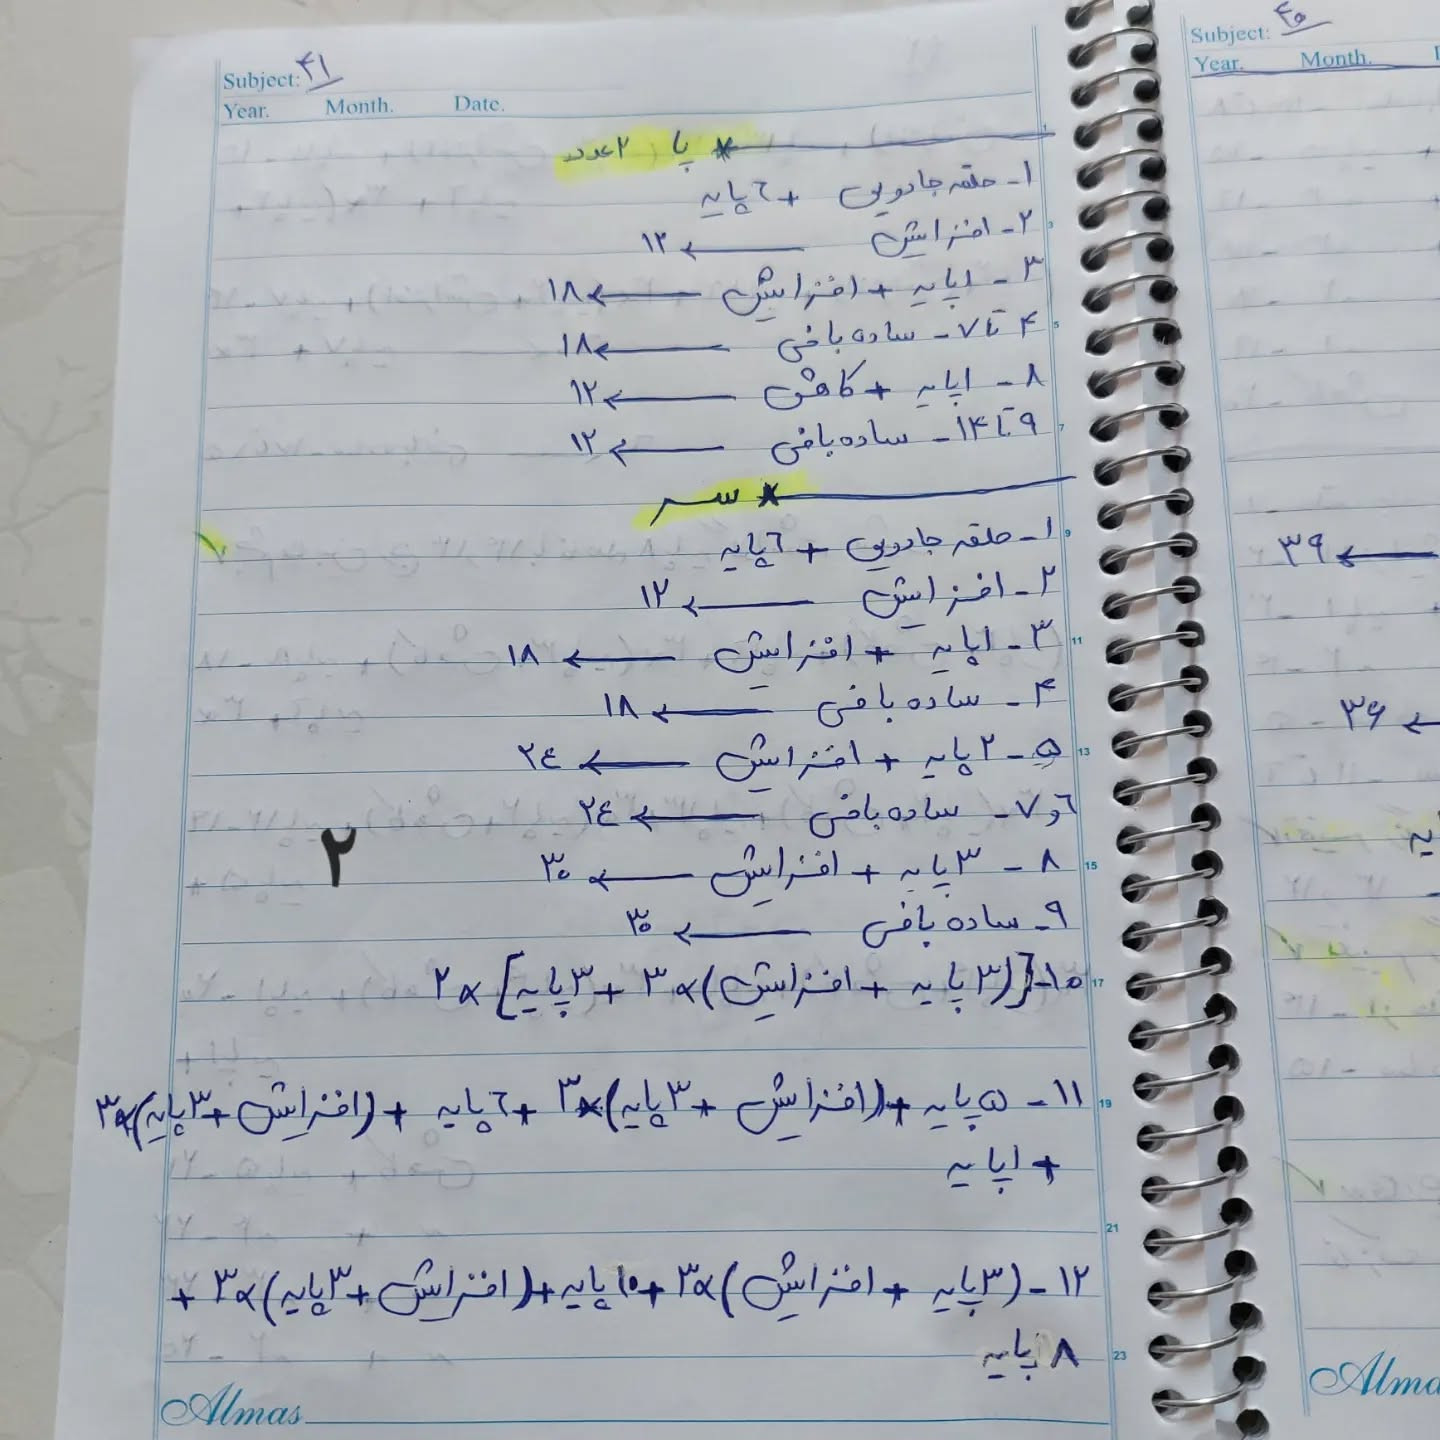 Subject: ۴۱
Year. Month. Date.
* پا ۲ عدد
۱- حلقه جادویی + ٦ پایه
۲- افزایش ← ۱۲
۳- ۱پایه + افزایش ← ۱۸
۴ تا ۷- ساده بافی ← ۱۸
۸- ۱پایه + کاهش ← ۱۲
۹ تا ۱۴- ساده بافی ← ۱۲
* سر
۱- حلقه جادویی + ٦ پایه
۲- افزایش ← ۱۲
۳- ۱پایه + افزایش ← ۱۸
۴- ساده بافی ← ۱۸
۵- ۲ پایه + افزایش ← ۲٤
٦ و ۷- ساده بافی ← ۲٤
۸- ۳ پایه + افزایش ← ۳۰
۹- ساده بافی ← ۳۰
۱۰- [(۳ پایه + افزایش)×۳ + ۳ پایه]×۲
۱۱- ۵ پایه + (افزایش + ۳ پایه)×۳ + ٦ پایه + (افزایش + ۳ پایه)×۳
+ ۱پایه
۱۲- (۳ پایه + افزایش)×۳ + ۱۰ پایه + (افزایش + ۳ پایه)×۳ +
۸ پایه
۲
Almas
1
3
5
7
9
11
13
15
17
19
21
23
Subject: ۴۰
Year. Month.
← ۳۹
← ۳۶
Alma